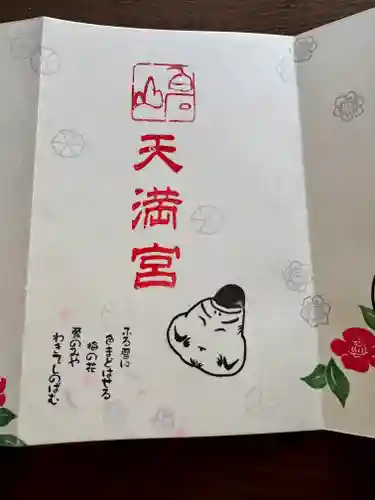 天満宮
ふる雪に
色まどはせる
梅の花
鶯のみや
わきてしのばむ